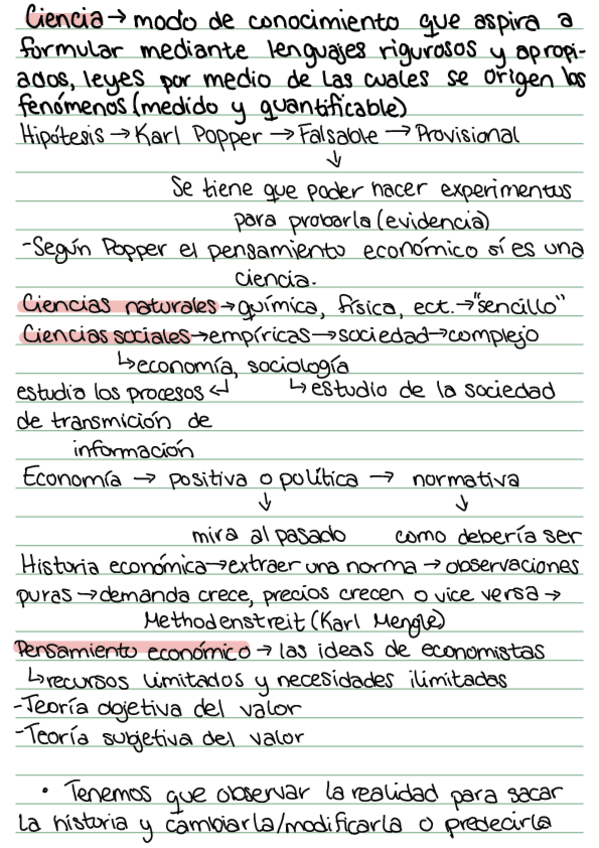 Ciencia → modo de conocimiento que aspira a
formular mediante lenguajes rigurosos y apropi-
ados, leyes por medio de las cuales se origen los
fenómenos (medido y quantificable)
Hipótesis → Karl Popper → Falsable → Provisional
↓
Se tiene que poder hacer experimentos
para probarla (evidencia)
-Según Popper el pensamiento económico sí es una
ciencia.
Ciencias naturales → química, física, ect. → "sencillo"
Ciencias sociales → empíricas → sociedad → complejo
↳ economía, sociología
estudia los procesos ↲ ↳ estudio de la sociedad
de transmición de
información
Economía → positiva o política → normativa
↓ ↓
mira al pasado como debería ser
Historia económica → extraer una norma → observaciones
puras → demanda crece, precios crecen o vice versa →
Methodenstreit (Karl Mengle)
Pensamiento económico → las ideas de economistas
↳ recursos limitados y necesidades ilimitadas
-Teoría objetiva del valor
-Teoría subjetiva del valor
• Tenemos que observar la realidad para sacar
la historia y cambiarla/modificarla o predecirla